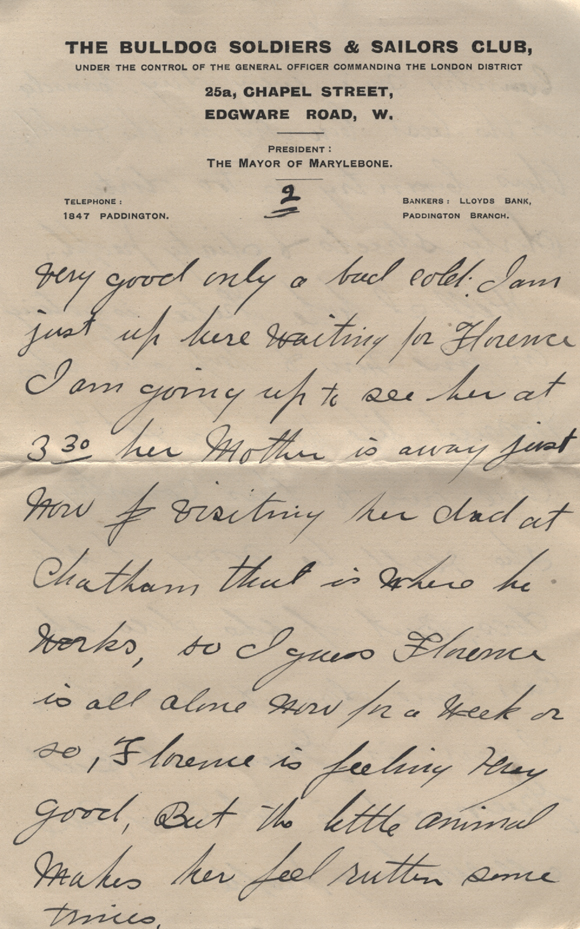 THE BULLDOG SOLDIERS & SAILORS CLUB,
UNDER THE CONTROL OF THE GENERAL OFFICER COMMANDING THE LONDON DISTRICT
25a, CHAPEL STREET,
EDGWARE ROAD, W.
PRESIDENT:
THE MAYOR OF MARYLEBONE.
2
TELEPHONE:
1847 PADDINGTON.
BANKERS: LLOYDS BANK,
PADDINGTON BRANCH.
very good only a bad cold. I am
just up here waiting for Florence
I am going up to see her at
3 30 her Mother is away just
now visiting her dad at
Chatham that is where he
works, so I guess Florence
is all alone now for a week or
so, Florence is feeling very
good, But the little animal
makes her feel rutten some
times.